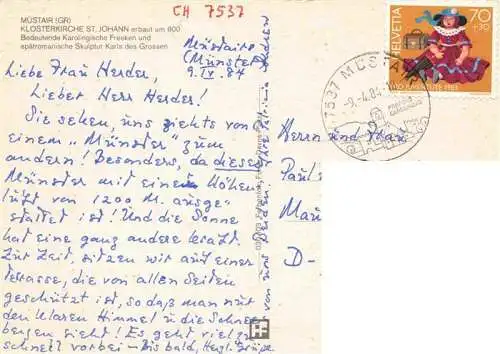 CH 7537
MÜSTAIR (GR)
KLOSTERKIRCHE ST. JOHANN erbaut um 800
Bedeutende Karolingische Fresken und
spätromanische Skulptur Karls des Grossen
Müstair
(Münster)
9. IV. 84
Liebe Frau Herder,
Lieber Herr Herder!
Sie sehen, uns ziehts von
einem „Münster" zum
andern! Besonders, da dieses
Münster mit einer Höhen
luft von 1200 M. ausge
stattet ist! Und die Sonne
hat eine ganz andere Kraft!
Zur Zeit, sitzen wir auf einer
Terasse, die von allen Seiten
geschützt ist, so daß man nur
den klaren Himmel u. die Schnee
bergen sieht! Es geht viel zu
schnell vorbei – Bis bald, Herzl. Grüße
von uns Beiden
HELVETIA
70
+30
PRO JUVENTUTE 1983
7537 MÜSTAIR
-9.-4.84
Herrn und Frau
Paul
D-